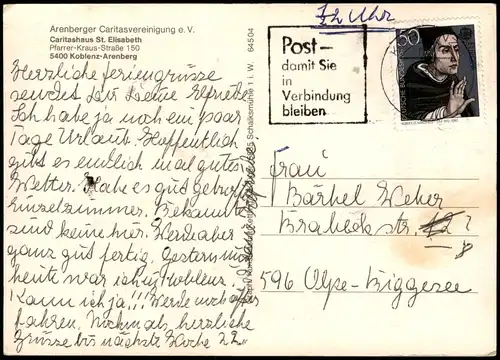 Arenberger Caritasvereinigung e. V.
Caritashaus St. Elisabeth
Pfarrer-Kraus-Straße 150
5400 Koblenz-Arenberg
Herzliche Feriengrüsse
sendet Dir Deine Elfriede
Ich habe ja noch ein paar
Tage Urlaub. Hoffentlich
gibt es endlich mal gutes
Wetter. Habe es gut
Einzelzimmer. Bekannte
sind keine hier. Werde aber
ganz gut fertig. Gestern und
heute war ich in Koblenz.
Kann ich ja!!! Werde noch öfter
fahren. Nochmals herzliche
Grüsse bis nächste Woche
64504
Schalksmühle 1 i. W.
Uhr
Post-
damit Sie
in
Verbindung
bleiben
50
Frau
Bärbel Weber
Brabeckstr.
8
596 Olpe-Biggesee